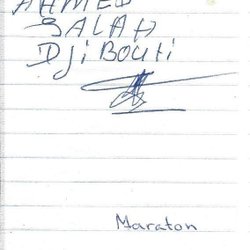 AHMED
SALAH
DjiBouti
Maraton